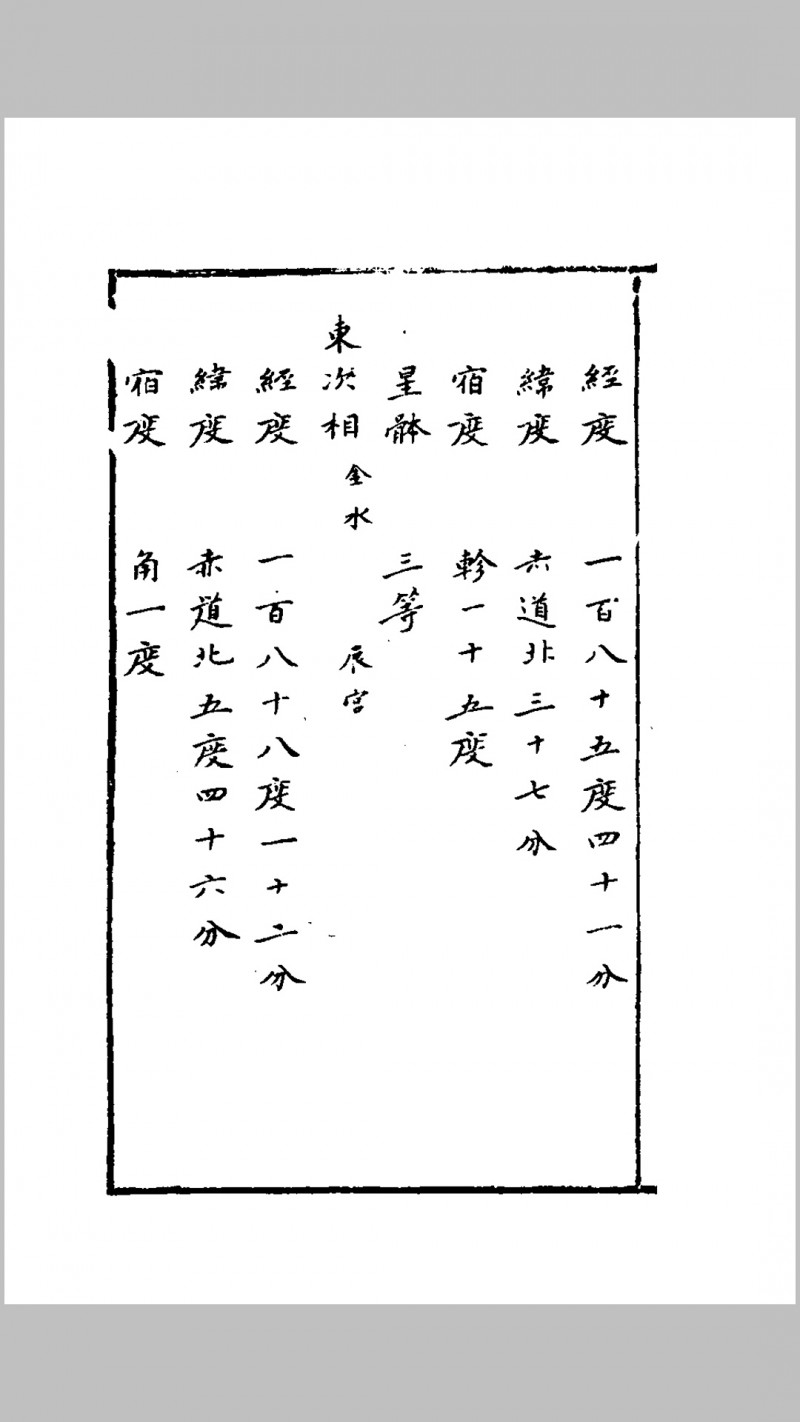 經度 一百八十五度四十一分
緯度 赤道北三十七分
宿度 軫一十五度
星體 三等
東次相 金水 辰宮
經度 一百八十八度一十二分
緯度 赤道北五度四十六分
宿度 角一度